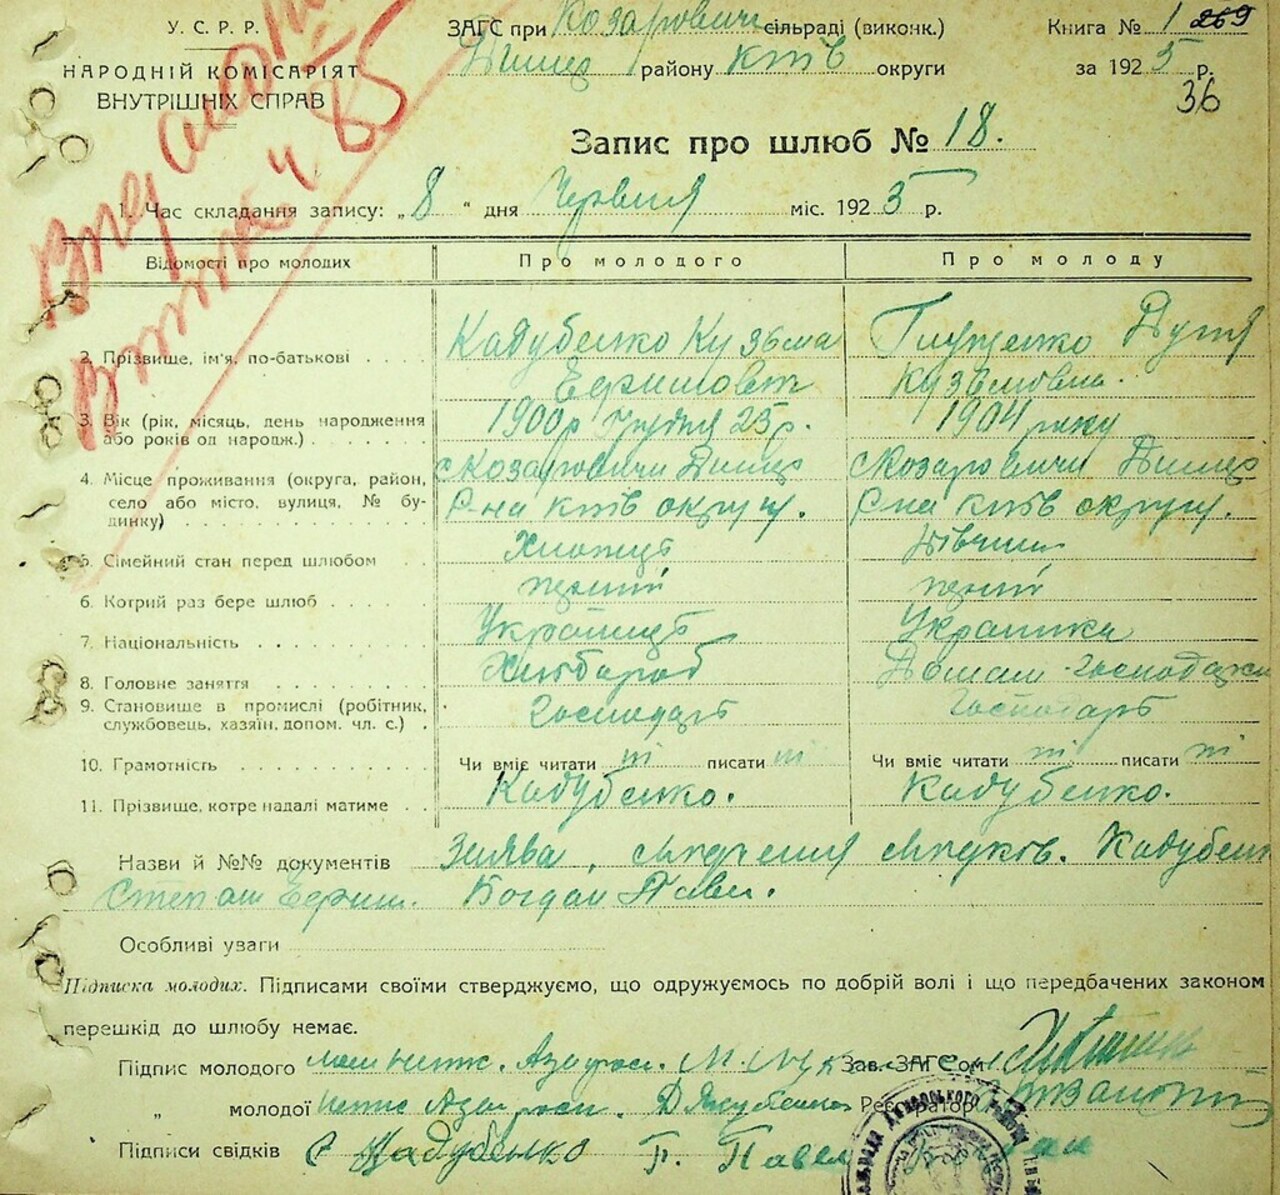 У. С. Р. Р.
НАРОДНІЙ КОМІСАРІЯТ
ВНУТРІШНІХ СПРАВ
ЗАГС при Козаровичі сільраді (виконк.)
Димер району Київ округи
Книга № 1 269
за 1925 р.
36
85
Запис про шлюб № 18.
1. Час складання запису: „8“ дня Червня міс. 1925 р.
Відомості про молодих
Про молодого
Про молоду
2. Прізвище, ім'я, по-батькові
Кадубенко Кузьма
Глущенко
Кузьмовна.
3. Вік (рік, місяць, день народження або років од народж.)
1900 р Грудня 25 р.
1904 року
4. Місце проживання (округа, район, село або місто, вулиця, № будинку)
с Козаровичи Димер
Р-на Київ округи.
с Козаровичи Димер
Р-на Київ округи.
5. Сімейний стан перед шлюбом
Хлопець
Дівчина
6. Котрий раз бере шлюб
перший
перший
7. Національність
Українець
Українка
8. Головне заняття
Хлібороб
Домаш. господарка
9. Становище в промислі (робітник, службовець, хазяїн, допом. чл. с.)
Господарь
Господарь
10. Грамотність
Чи вміє читати ні писати ні
Чи вміє читати ні писати ні
11. Прізвище, котре надалі матиме
Кадубенко.
Кадубенко.
Назви й №№ документів Заява, Кадубенк
Степан Ефрим. Богдан Павл.
Особливі уваги
Підписка молодих. Підписами своїми стверджуємо, що одружуємось по добрій волі і що передбачених законом
перешкід до шлюбу немає.
Підпис молодого
Зав. ЗАГС'ом
„ молодої
Реєстратор
Підписи свідків С Кадубенко Б. Павел